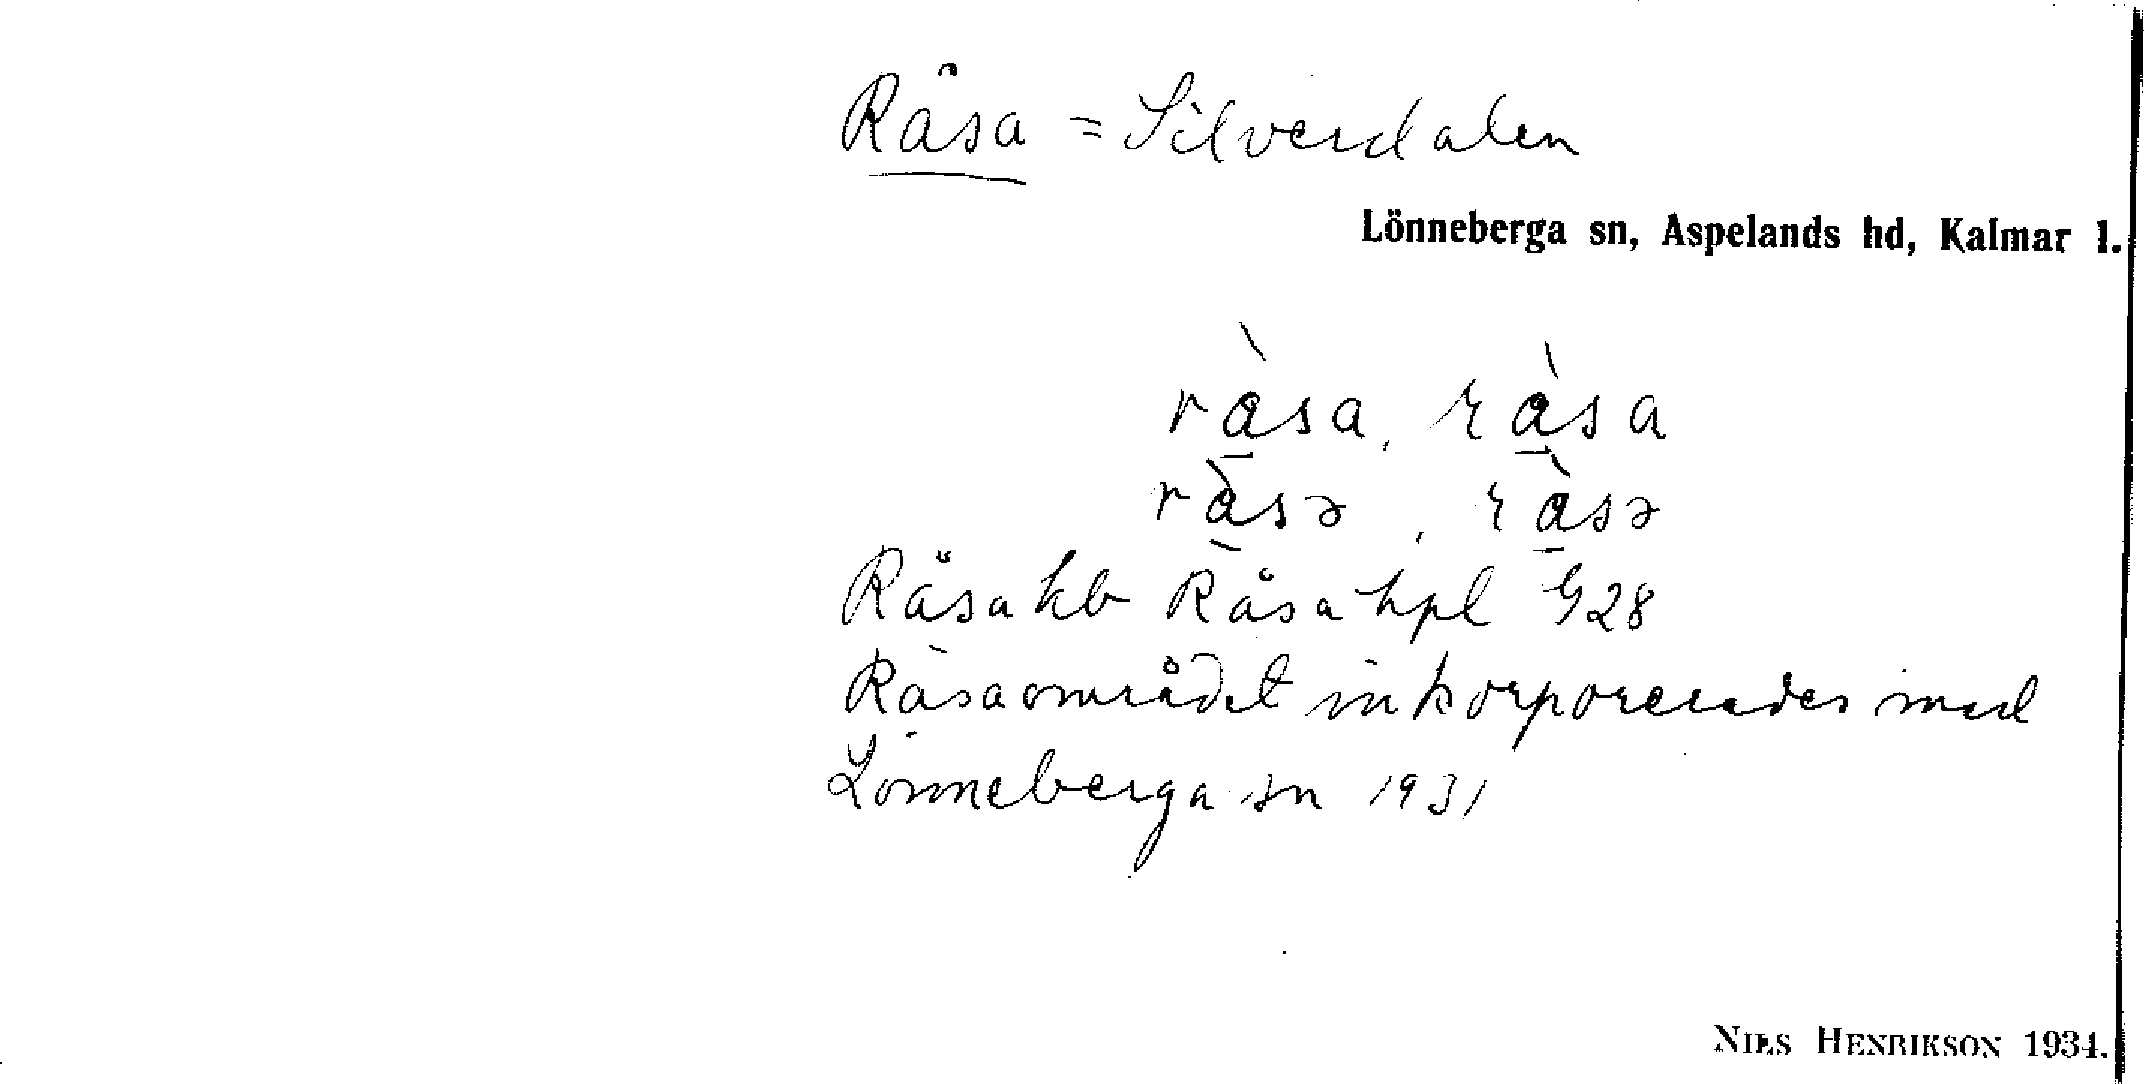 Råsa = Silverdalen
Lönneberga sn, Aspelands hd, Kalmar l.
ràsa, ràsa
ràsə, ràsə
Råsa kb Råsa hpl G28
Råsaområdet inkorporerades med
Lönneberga sn 1931
NILS HENRIKSON 1934.